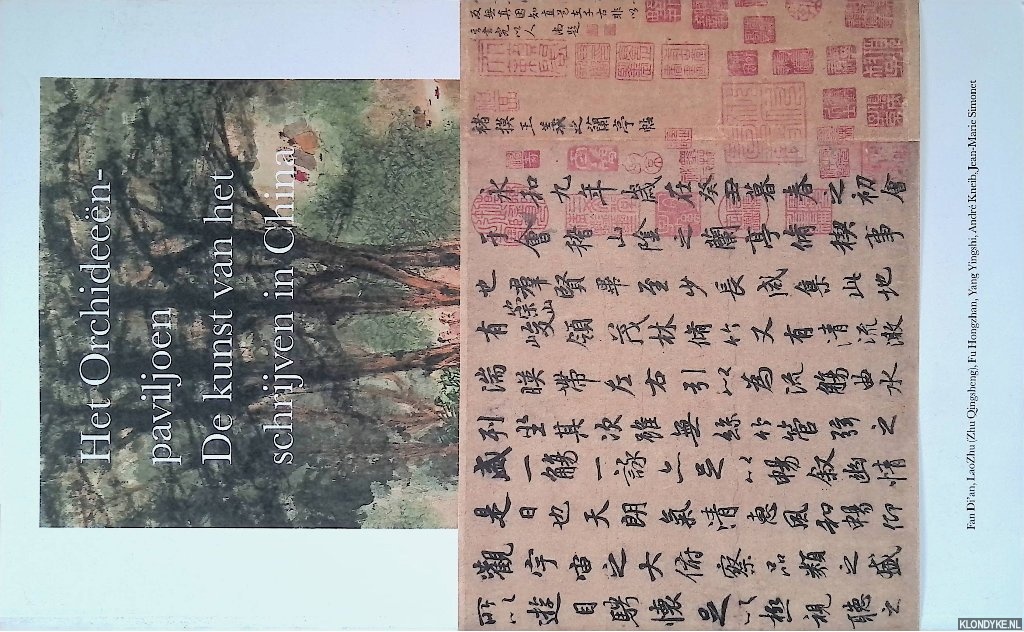 Het Orchideeën-
paviljoen
De kunst van het
schrijven in China
褚摸王羲之蘭亭帖
永和九年歲在癸丑暮春之初會
于會稽山陰之蘭亭脩禊事
也羣賢畢至少長咸集此地
有崇山峻領茂林脩竹又有清流激
湍暎帶左右引以為流觴曲水
列坐其次雖無絲竹管弦之
盛一觴一詠亦足以暢叙幽情
是日也天朗氣清惠風和暢仰
觀宇宙之大俯察品類之盛
所以遊目騁懷足以極視聽之
Fan Di'an, LaoZhu (Zhu Qingsheng), Fu Hongzhan, Yang Yingshi, André Kneib, Jean-Marie Simonet
KLONDYKE.NL